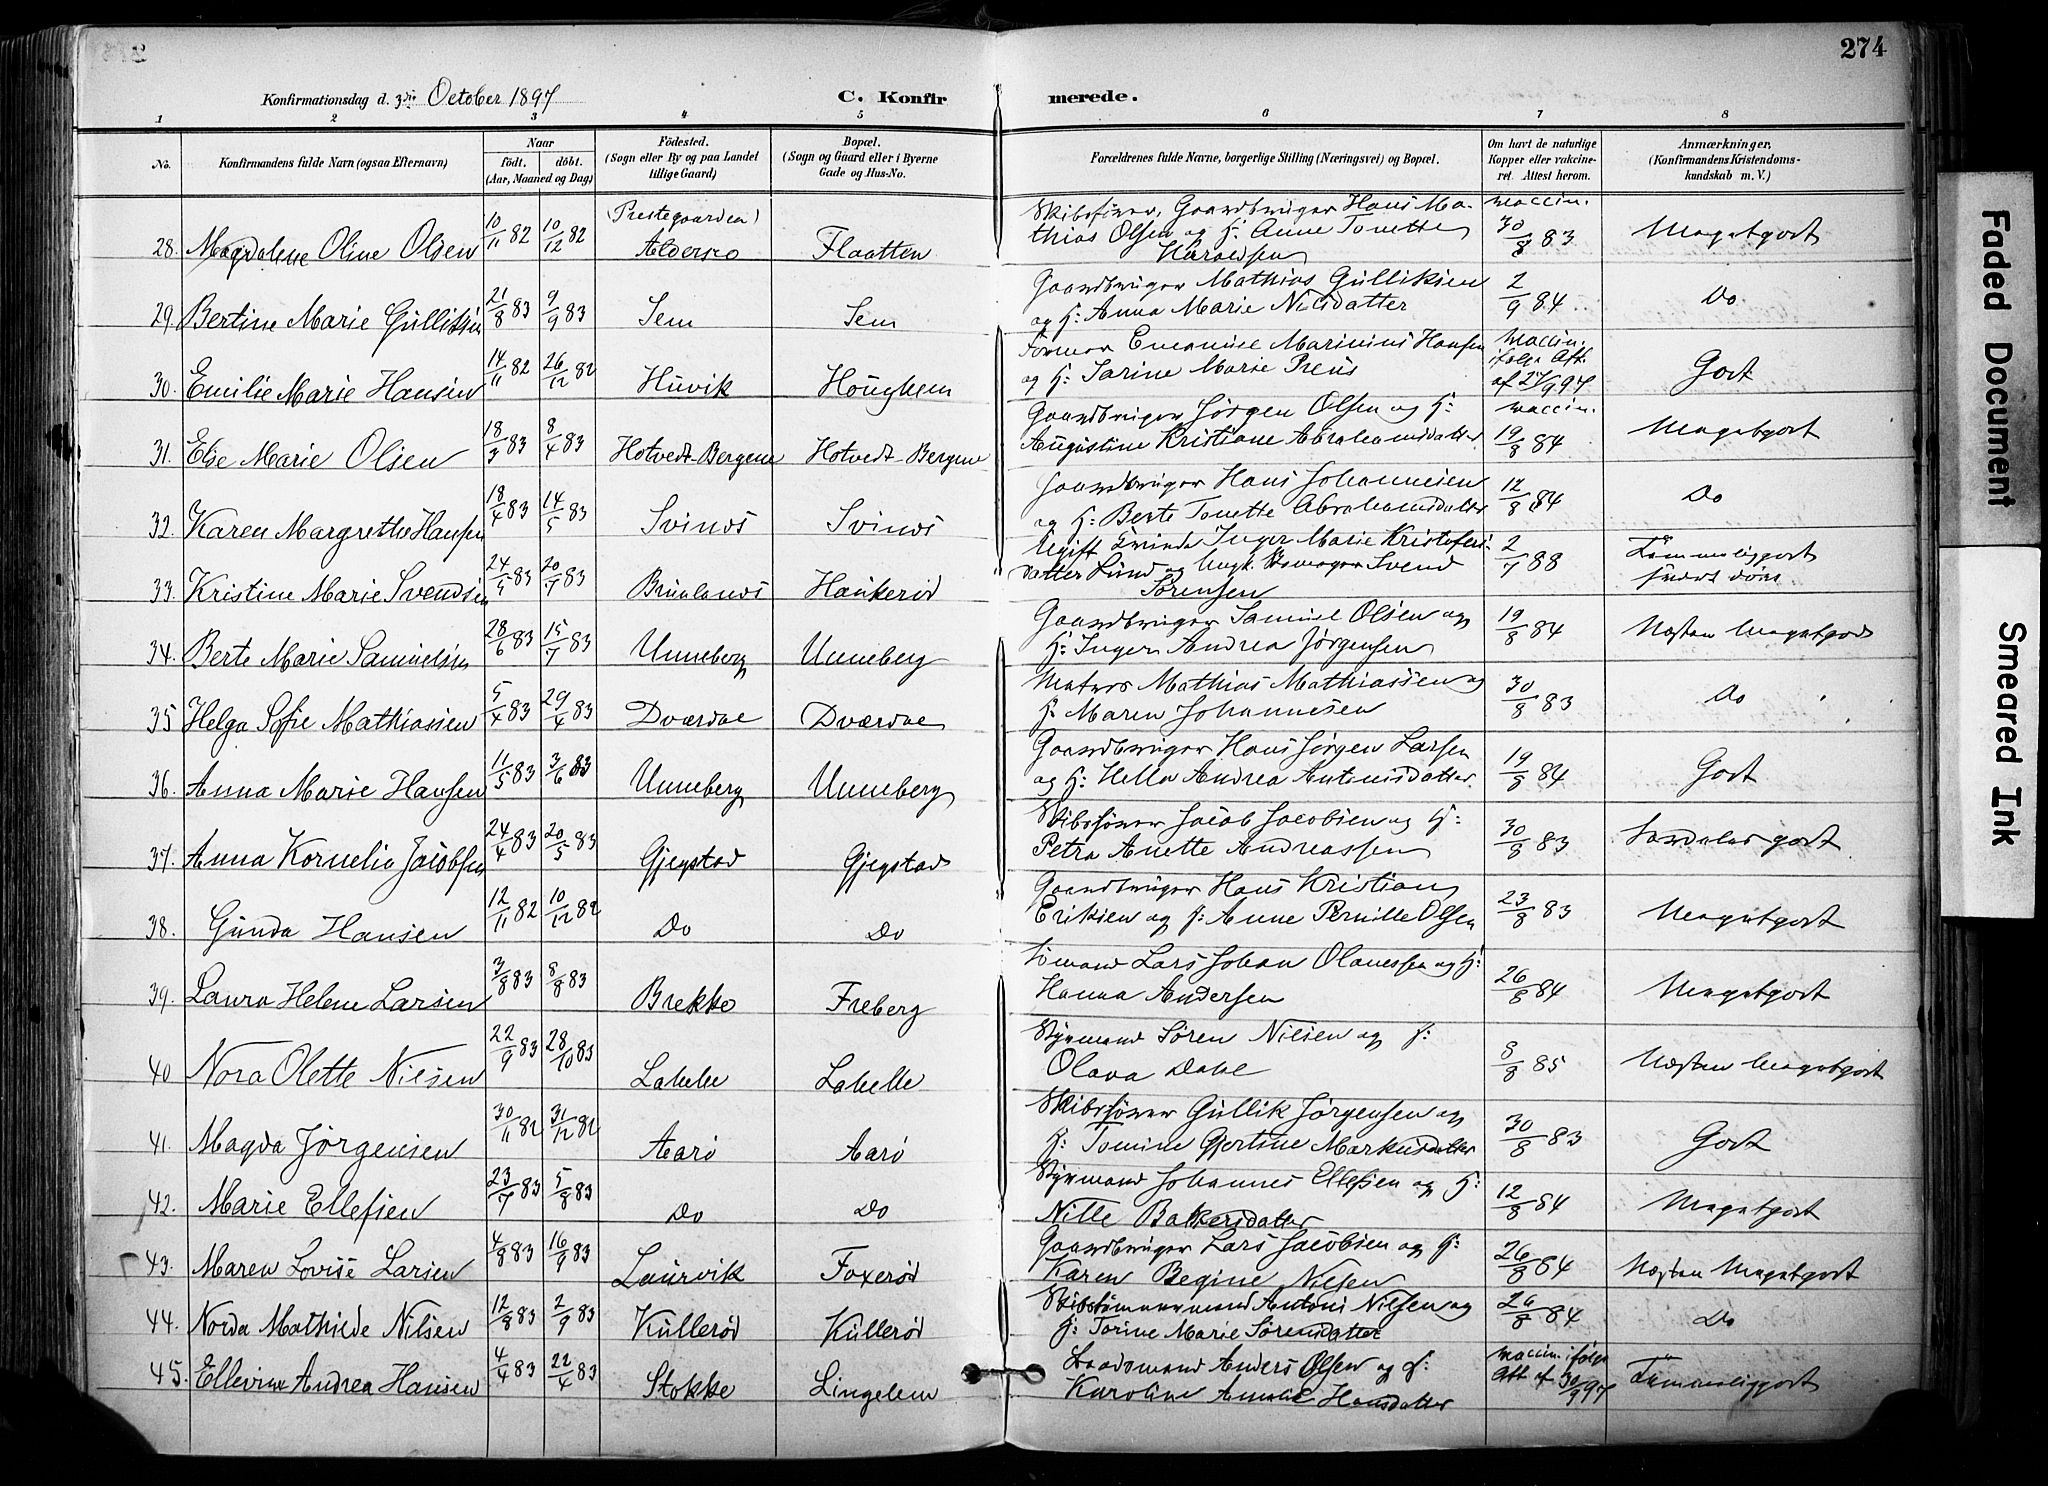 274
Konfirmationsdag d. 3die October 1897 C. Konfirmerede.
1 2 3 4 5 6 7 8
No. Konfirmandens fulde Navn (ogsaa Efternavn) Naar födt. döbt. (Aar, Maaned og Dag) Födested. (Sogn eller By og paa Landet tillige Gaard) Bopæl. (Sogn og Gaard eller i Byerne Gade og Hus-No. Forældrenes fulde Navne, borgerlige Stilling (Næringsvei) og Bopæl. Om havt de naturlige Kopper eller vakcineret. Attest herom. Anmærkninger, (Konfirmandens Kristendomskundskab m. V.)
28. Magdalene Oline Olsen 10/11 82 10/12 82 (Prestegaarden) Flaatten Skibsfører, Gaardbruger Hans Mathias Olsen og H: Anne Tonette vaccin. 30/8 83 Megetgodt
29. Bertine Marie Gulliksen 21/8 83 9/9 83 Sem Sem Gaardbruger Mathias Gulliksen og H: Anna Marie Nilsdatter 2/9 84 Do
30. Emilie Marie Hansen 14/11 82 26/12 82 Huvik Houghem Former Emanuel Marinius Hansen og H: Sarine Marie Preus vaccin. ifølge Att. af 27/9 97 Godt
31. Else Marie Olsen 18/3 83 8/4 83 Hotvedt-Bergene Hotvedt-Bergene Gaardbruger Jørgen Olsen og H: Augustine Kristiane Abrahamsdatter vaccin. 19/8 84 Megetgodt
32. Karen Margrethe Hansen 18/4 83 14/5 83 Svinøs Svinøs Gaardbruger Hans Johannesen og H: Berte Tonette Abrahamsdatter 12/8 84 Do
33. Kristine Marie Svendsen 24/5 83 20/7 83 Brunlanes Haukerød Ugift Kvinde Inger Marie Kristofersdatter Lund og Ungk. Svend Sørensen 2/7 88 Temmeliggodt
34. Berte Marie Samuelsen 28/6 83 15/7 83 Unneberg Unneberg Gaardbruger Samuel Olsen og H: Inger Andrea Jørgensen 19/8 84 Næsten Megetgodt
35 Helga Sofie Mathiassen 5/4 83 29/4 83 Dværdae Dværdae Matros Mathias Mathiassen og H: Maren Johannesen 30/8 83 Do
36. Anna Marie Hansen 11/5 83 3/6 83 Unneberg Unneberg Gaardbruger Hans Jørgen Larsen og H: Hella Andrea Antonisdatter 19/8 84 Godt
37. Anna Kornelia Jacobsen 24/4 83 20/5 83 Gjegstad Gjegstad Skibsfører Jacob Jacobsen og H: Petra Anette Andreassen 30/8 83 Særdeles godt
38. Gunda Hansen 12/11 82 10/12 82 Do Do Gaardbruger Hans Kristian Eriksen og H: Anne Pernille Olsen 23/8 83 Megetgodt
39. Laura Helene Larsen 3/8 83 8/8 83 Brekke Freberg Sømand Lars Johan Olaussen og H: Hanna Andersen 26/8 84 Megetgodt
40 Nora Olette Nilsen 22/9 83 28/10 83 Labelle Labelle Styrmand Søren Nilsen og H: Olava Dahl 8/8 85 Næsten Megetgodt
41. Magda Jørgensen 30/11 82 31/12 82 Aarø Aarø Skibsfører Gullik Jørgensen og H: Tomine Gjertine Markusdatter 30/8 83 Godt
42. Marie Ellefsen 23/7 83 5/8 83 Do Do Styrmand Johannes Ellefsen og H: Nille Bakkersdatter 12/8 84 Megetgodt
43. Maren Lovise Larsen 4/8 83 16/9 83 Laurvik Foxerød Gaardbruger Lars Jacobsen og H: Karen Begine Nilsen 26/8 84 Næsten Megetgodt
44. Norda Mathilde Nilsen 12/8 83 2/9 83 Kullerød Kullerød Skibstømmermand Antoni Nilsen og H: Torine Marie Sørensdatter 26/8 84 Do
45. Ellevine Andrea Hansen 4/4 83 22/4 83 Stokke Lingelem Anders Olsen og H: Karoline Amalie Hansdatter vaccin. ifølge Att. af 30/9 97 Temmeliggodt
Faded Document
Smeared Ink